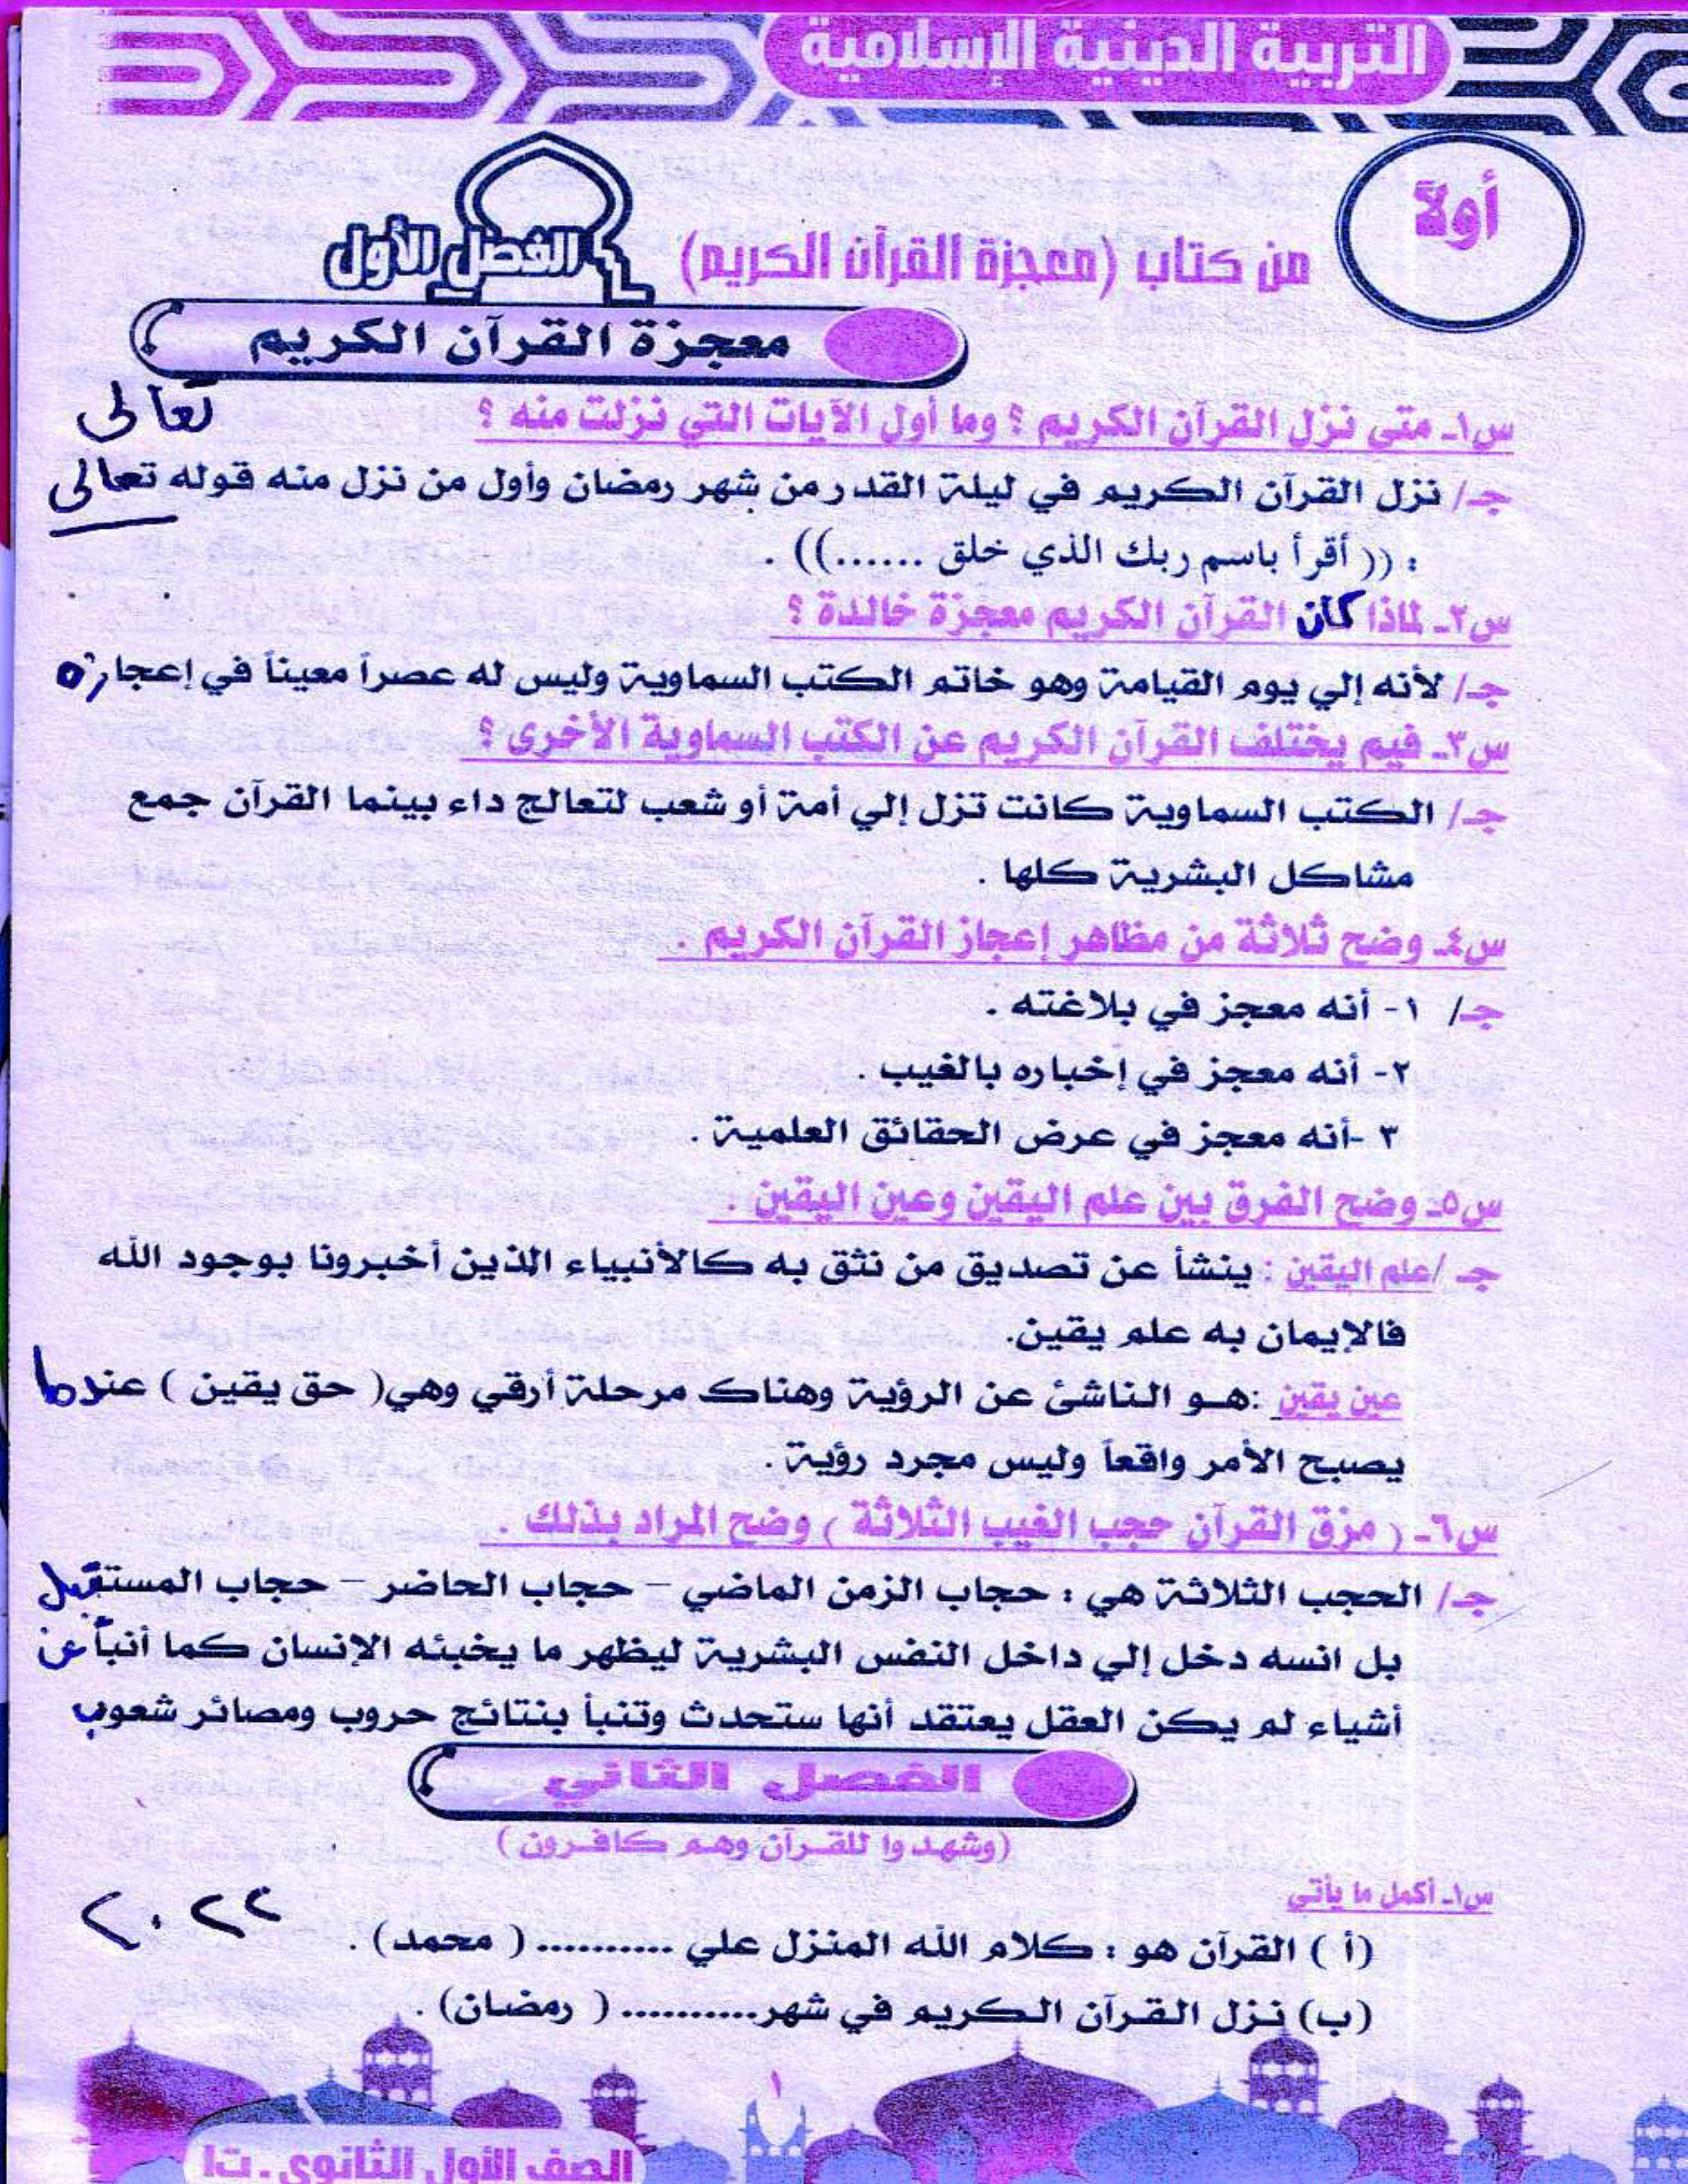 التربية الدينية الإسلامية
أولاً
من كتاب (معجزة القرآن الكريم)
الفصل الأول
معجزة القرآن الكريم
تعالى
س١ـ متى نزل القرآن الكريم ؟ وما أول الآيات التي نزلت منه ؟
جـ/ نزل القرآن الكريم في ليلة القدر من شهر رمضان وأول من نزل منه قوله تعالى
: (( أقرأ باسم ربك الذي خلق ......)) .
س٢ـ لماذا كان القرآن الكريم معجزة خالدة ؟
جـ/ لأنه إلي يوم القيامة وهو خاتم الكتب السماوية وليس له عصراً معيناً في إعجازه
س٣ـ فيم يختلف القرآن الكريم عن الكتب السماوية الأخرى ؟
جـ/ الكتب السماوية كانت تزل إلي أمة أو شعب لتعالج داء بينما القرآن جمع
مشاكل البشرية كلها .
س٤ـ وضح ثلاثة من مظاهر إعجاز القرآن الكريم .
جـ/ ١- أنه معجز في بلاغته .
٢- أنه معجز في إخباره بالغيب .
٣ -أنه معجز في عرض الحقائق العلمية .
س٥ـ وضح الفرق بين علم اليقين وعين اليقين .
جـ /علم اليقين : ينشأ عن تصديق من نثق به كالأنبياء الذين أخبرونا بوجود الله
فالإيمان به علم يقين.
عين يقين :هـو الناشئ عن الرؤية وهناك مرحلة أرقي وهي( حق يقين ) عندما
يصبح الأمر واقعاً وليس مجرد رؤية .
س٦ـ ( مزق القرآن حجب الغيب الثلاثة ) وضح المراد بذلك .
جـ/ الحجب الثلاثة هي : حجاب الزمن الماضي – حجاب الحاضر – حجاب المستقبل
بل انسه دخل إلي داخل النفس البشرية ليظهر ما يخبئه الإنسان كما أنبأ عن
أشياء لم يكن العقل يعتقد أنها ستحدث وتنبأ بنتائج حروب ومصائر شعوب
الفصل الثاني
(وشهدوا للقـرآن وهـم كافـرون )
س١ـ أكمل ما يأتي
٢٠٢٢
(أ ) القرآن هو : كلام الله المنزل علي .......... ( محمد) .
(ب) نـزل القـرآن الـكريم في شهر.......... ( رمضـان) .
١
الصف الأول الثانوي ـ ت١